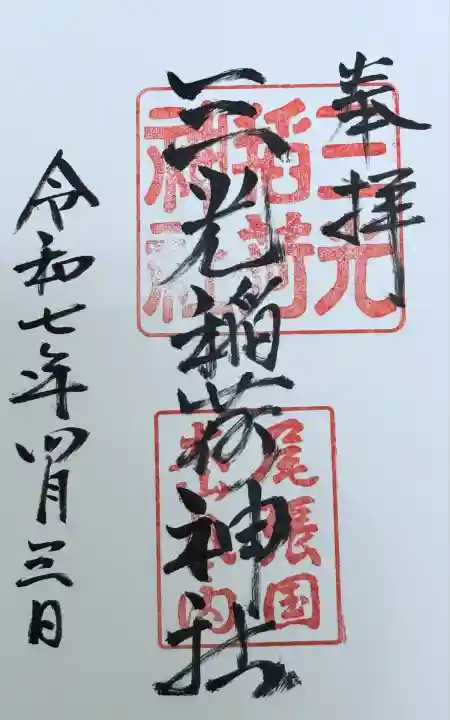 奉拝
三光稲荷神社
令和七年四月三日
三光
稲荷
神社
尾張国
山城内